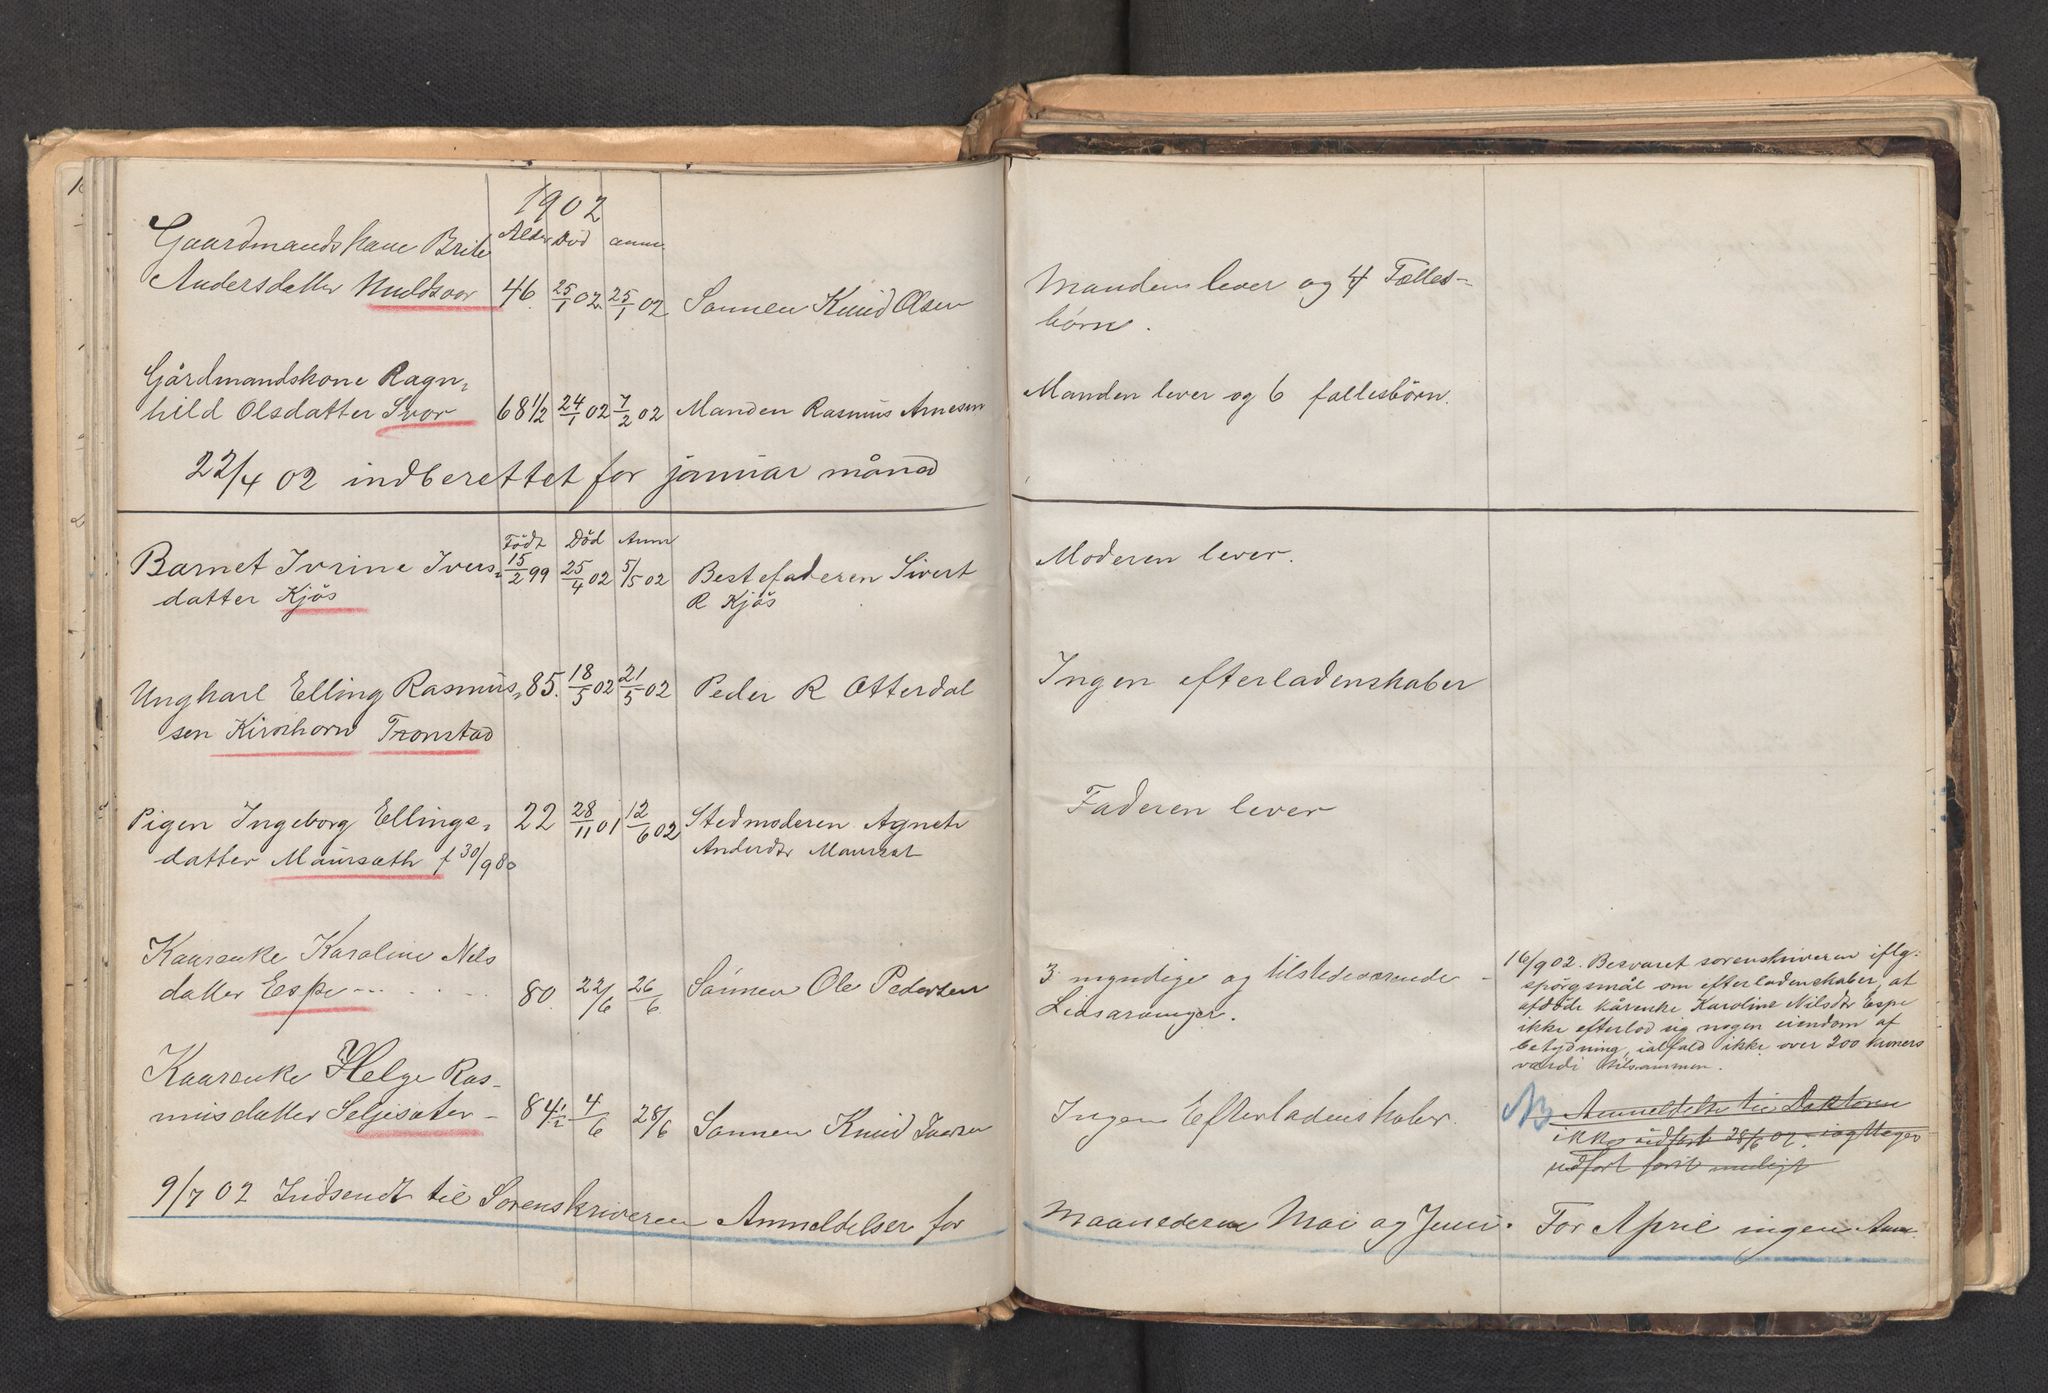 1902
Alder Död anm.
Gaardmandskone Brite
Andersdatter Muldsvor 46. 25/1 02. 25/1 02 Sønnen Knud Olsen
Manden lever og 4 Fælles-
børn.
Gårdmandskone Ragn-
hild Olsdatter Svor 68 1/2 24/1 02 7/2 02 Manden Rasmus Arnesen
Manden lever og 6 fællesbörn.
22/4 02 indberettet for januar måned
Födt Död Anm
Barnet Ivrine Ivers- 15/2 99 25/4 02 5/5 02 Bestefaderen Sivert
datter Kjös R Kjös
Moderen lever.
Ungkarl Elling Rasmus- 85. 18/5 02 21/5 02 Peder R Otterdal
sen Kirkhorn Tronstad
Ingen efterladenskaber
Pigen Ingeborg Ellings- 22 28/11 01 12/6 02 Stedmoderen Agnete
datter Maurseth f 30/9 80 Andersdtr Maurset
Faderen lever
Kaarenke Karoline Nils
datter Espe 80. 22/6 26/6 Sønnen Ole Pedersen
3 myndige og tilstedeværende
Livsarvinger.
16/9 02. Besvaret sorenskriveren iflg.
spörgsmål om efterladenskaber, at
afdöde kårenke Karoline Nilsdtr Espe
ikke efterlod sig nogen eiendom af
betydning, ialfald ikke over 200 kroners
værdi tilsammen.
Kaarenke Helge Ras-
musdatter Seljesæter 84 1/2 4/6 28/6 Sønnen Knud Iversen
Ingen Efterladenskaber.
NB Anmeldelse til Doktoren
ikke udfört 28/6 02. iagttages
udfört först muligt
9/7 02 Indsendt til Sorenskriveren Anmeldelser for
Maanederne Mai og Juni. For April ingen Anm.